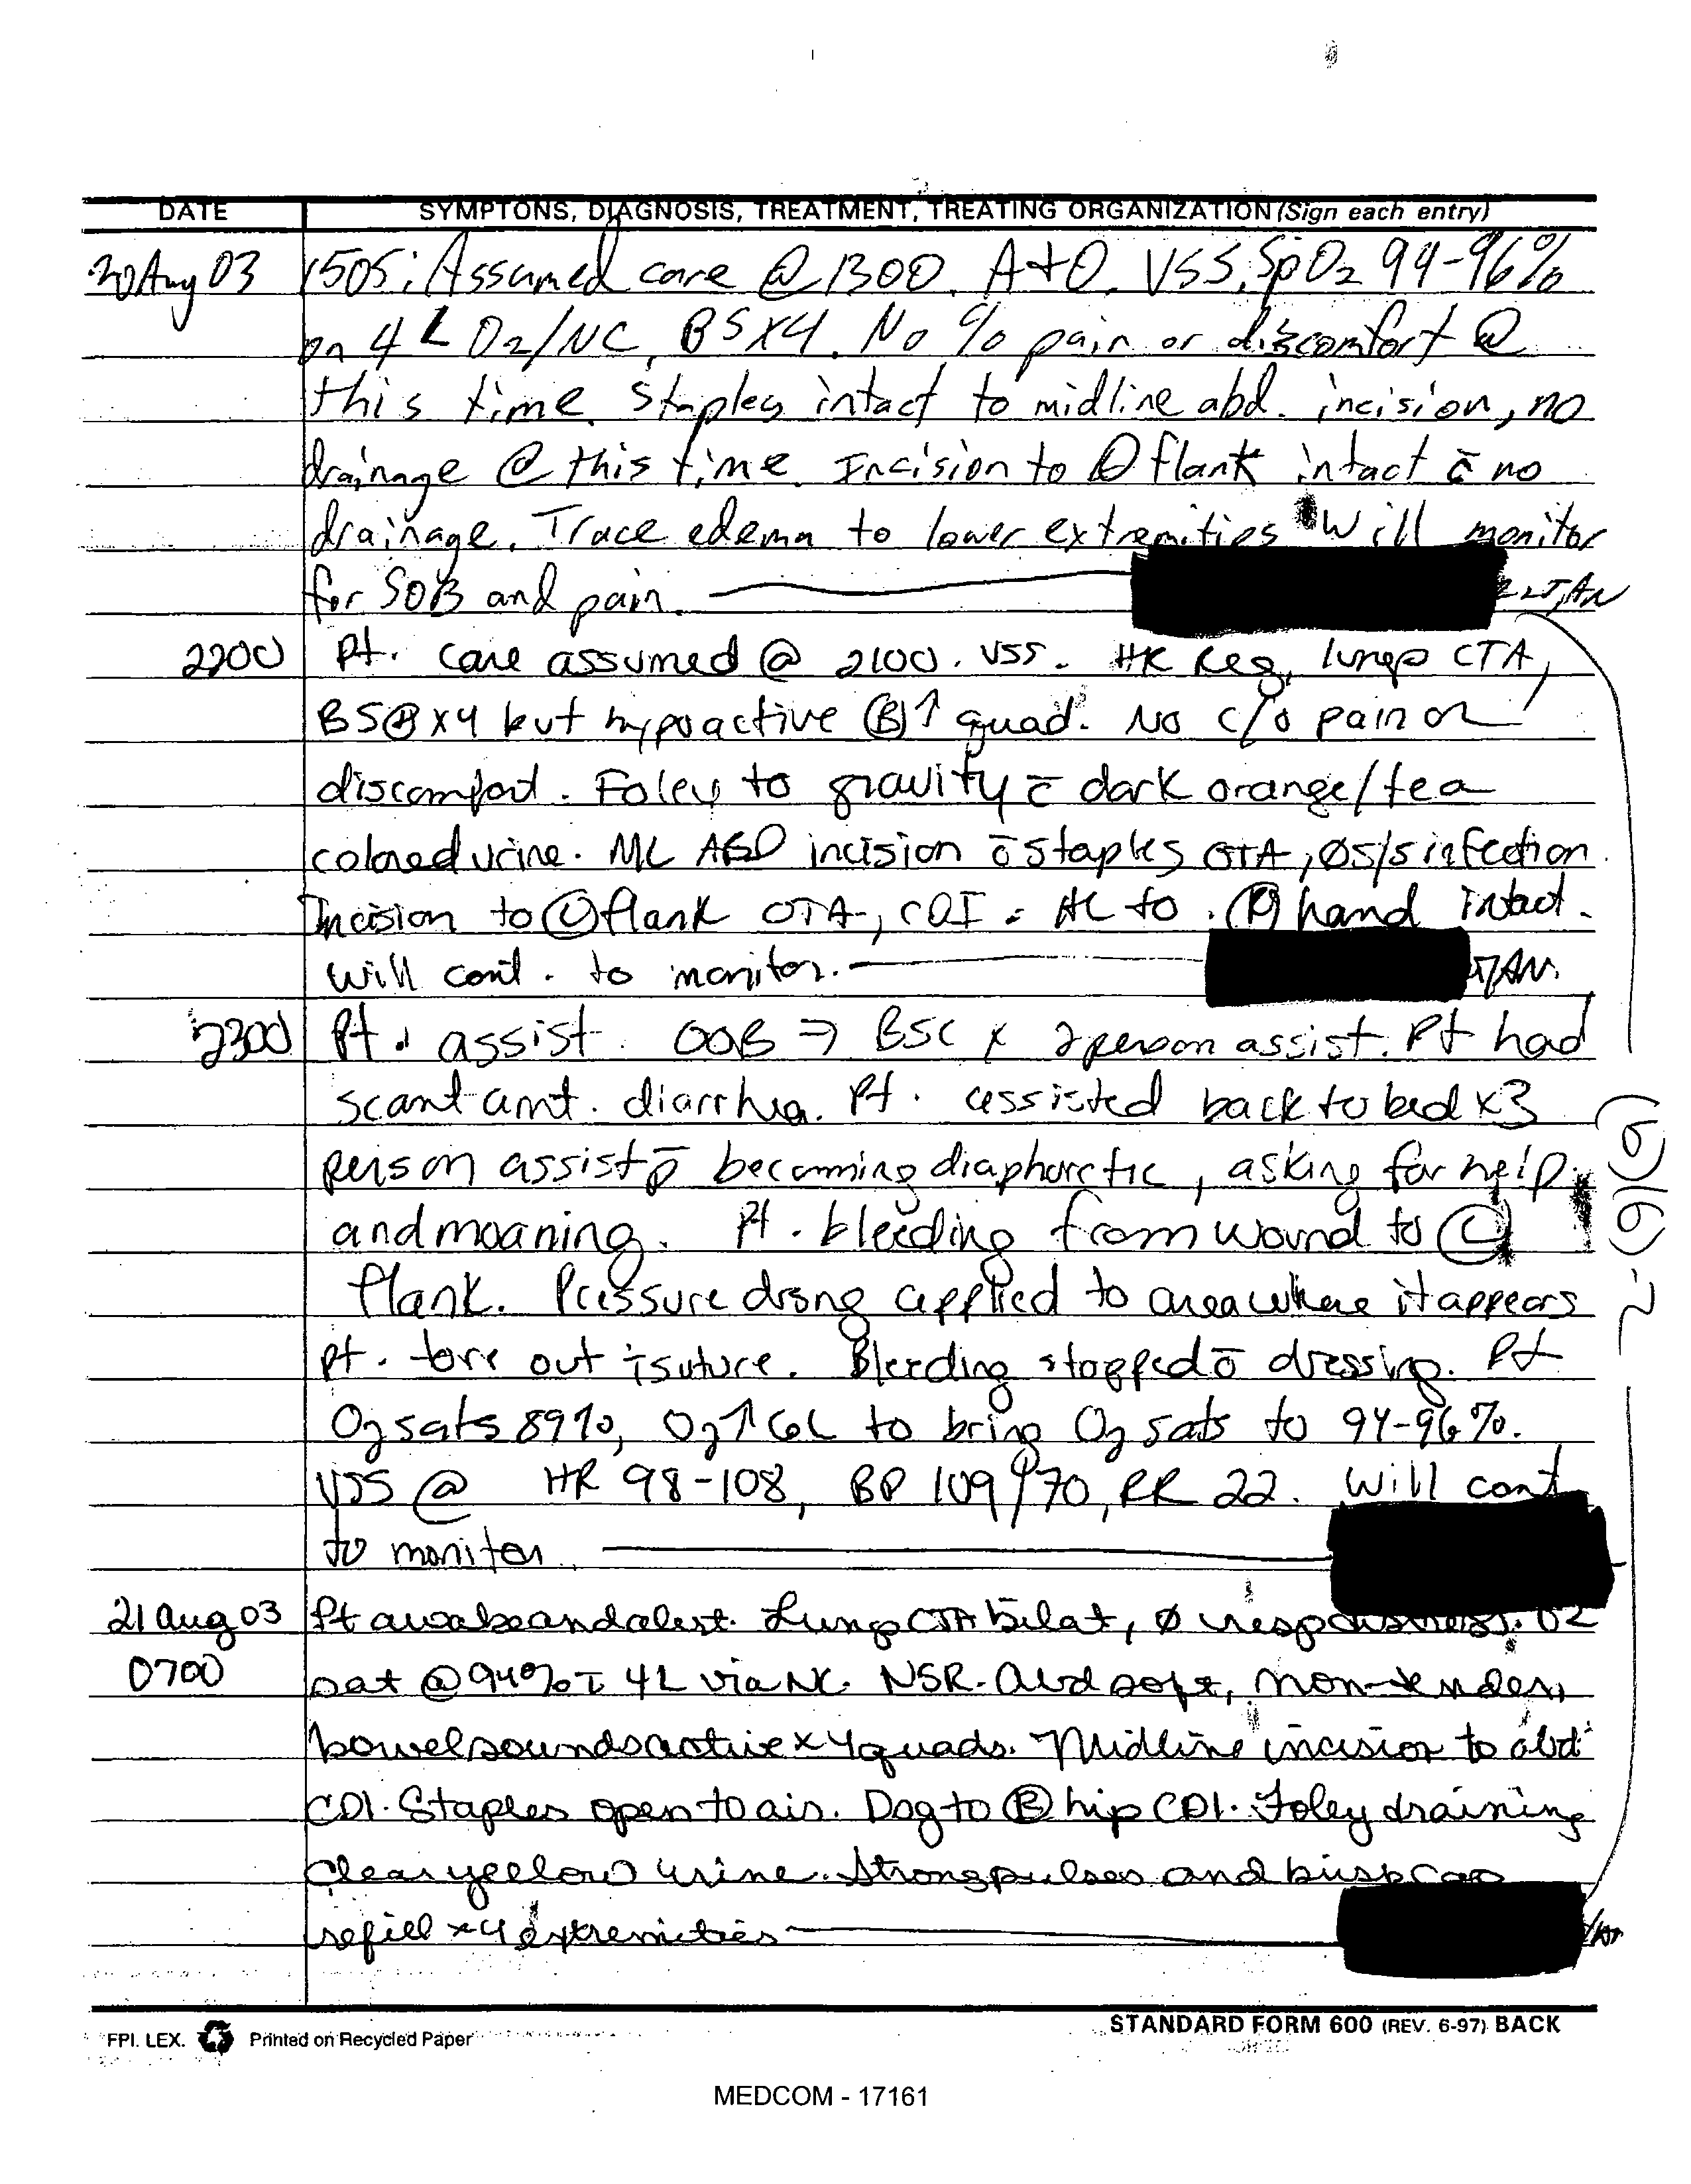 DATE SYMPTONS, DIAGNOSIS, TREATMENT, TREATING ORGANIZATION (Sign each entry)
20 Aug 03 1505: Assumed care @ 1300. A+O. VSS. SpO2 94-96%
on 4L O2/NC, BSx4. No c/o pain or discomfort @
this time. Staples intact to midline abd. incision, no
drainage @ this time. Incision to Ⓛ flank intact c̄ no
drainage. Trace edema to lower extremities. Will monitor
for SOB and pain.
2200 Pt. care assumed @ 2100. VSS. HR Reg, lungs CTA,
BS⊕x4 but hypoactive Ⓑ↑ quad. No c/o pain or
discomfort. Foley to gravity c̄ dark orange/tea
colored urine. ML ABD incision c̄ staples OTA, Øs/s infection
Incision to Ⓛ flank OTA, CDI. HL to Ⓡ hand intact.
will cont. to monitor.
2300 Pt. assist. OOB ⇒ BSC x 2 person assist. Pt had
scant amt. diarrhea. Pt. assisted back to bed x3
person assist p̄ becoming diaphoretic, asking for help
and moaning. Pt. bleeding from wound to Ⓛ
flank. Pressure drsng applied to area where it appears
pt. tore out ī suture. Bleeding stopped c̄ dressing. Pt
O2 sats 89%, O2↑ 6L to bring O2 sats to 94-96%.
VSS @ HR 98-108, BP 109/70, RR 22. Will cont
to monitor
21 Aug 03 Pt awake and alert. Lungs CTA bilat, Ø resp distress. O2
0700 sat @ 94% c̄ 4L via NC. NSR. Abd soft, non-tender,
bowel sounds active x 4 quads. Midline incision to abd
CDI. Staples open to air. Dsg to Ⓡ hip CDI. Foley draining
clear yellow urine. Strong pulses and brisk cap
refill x4 extremities
(b)(6)-2
FPI. LEX. Printed on Recycled Paper
STANDARD FORM 600 (REV. 6-97) BACK
MEDCOM - 17161